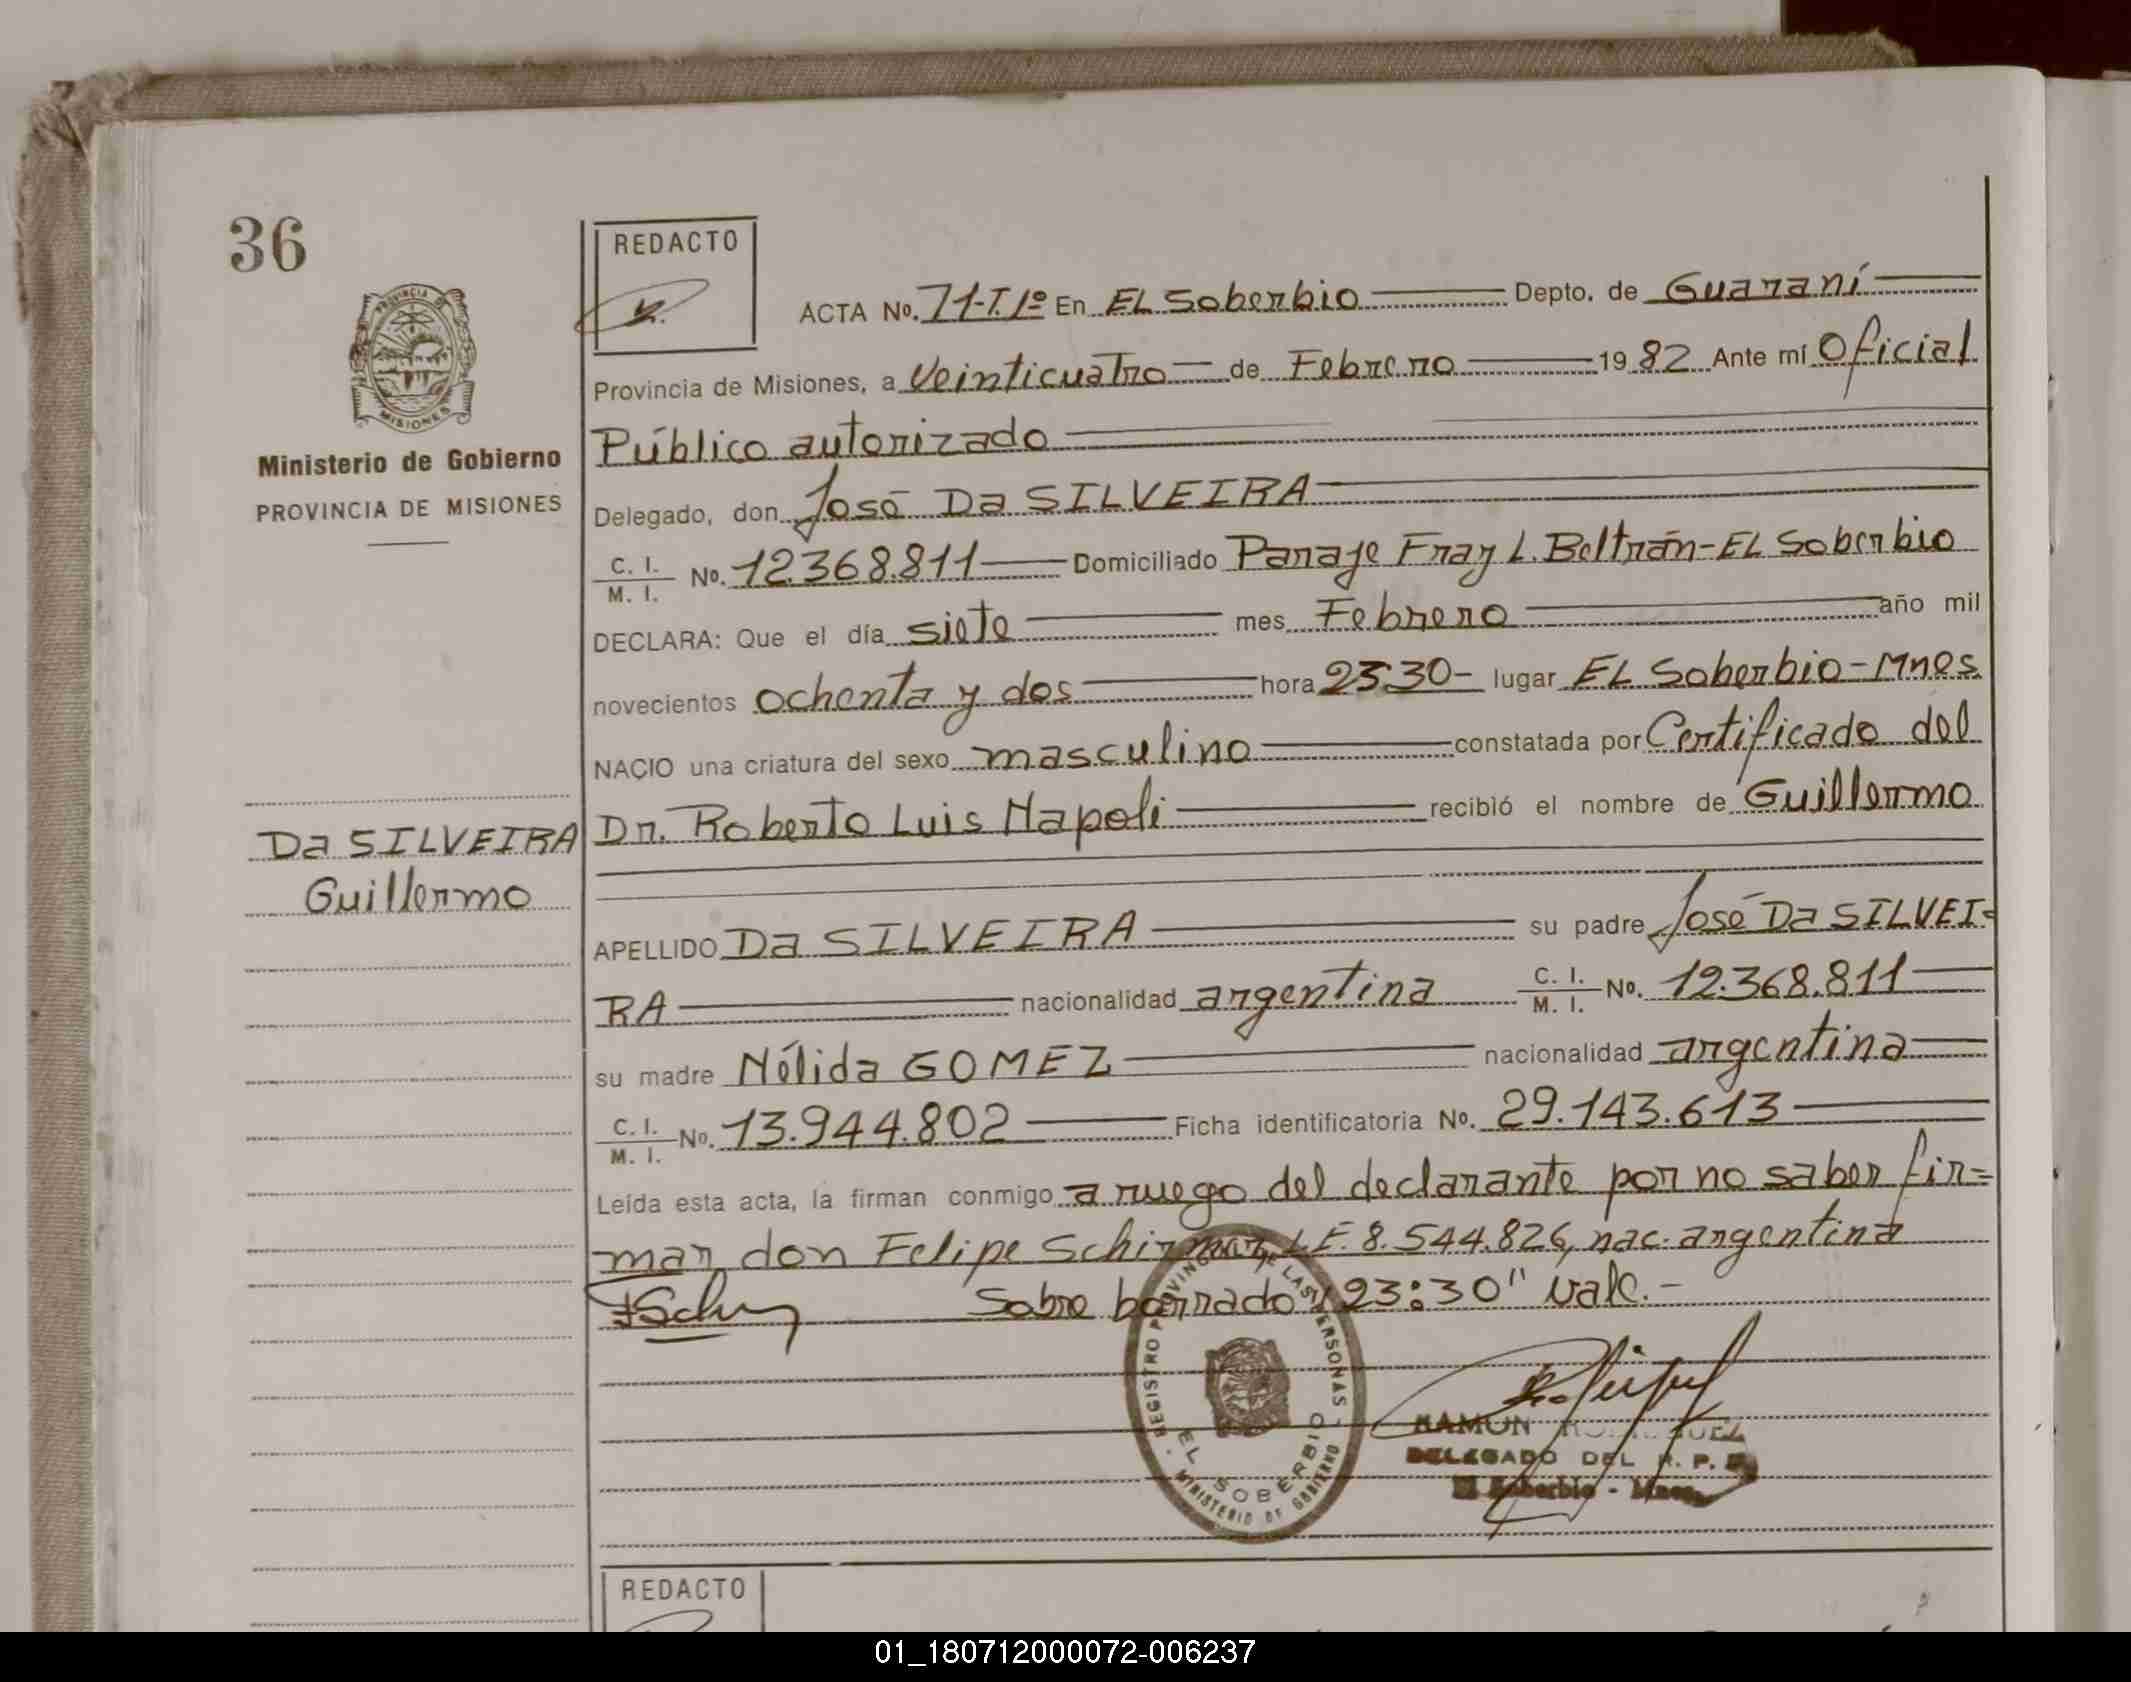 36
REDACTO
ACTA No. 71-T.1º En EL Soberbio Depto. de Guaraní
Provincia de Misiones, a Veinticuatro de Febrero 1982 Ante mí Oficial
Público autorizado
Ministerio de Gobierno
PROVINCIA DE MISIONES
Delegado, don José Da SILVEIRA
C. I.
M. I. No. 12.368.811 Domiciliado Paraje Fray L. Beltrán-EL Soberbio
DECLARA: Que el día siete mes Febrero año mil
novecientos ochenta y dos hora 23:30- lugar EL Soberbio-Mnes
NACIO una criatura del sexo masculino constatada por Certificado del
Dr. Roberto Luis Napoli recibió el nombre de Guillermo
Da SILVEIRA
Guillermo
APELLIDO Da SILVEIRA su padre José Da SILVEI=
RA nacionalidad argentina C. I.
M. I. No. 12.368.811
su madre Nélida GOMEZ nacionalidad argentina
C. I.
M. I. No. 13.944.802 Ficha identificatoria No. 29.143.613
Leída esta acta, la firman conmigo a ruego del declarante por no saber fir=
mar, don Felipe LE. 8.544.826, nac. argentina
Sobre borrado "23:30" vale.-
REGISTRO PROVINCIAL DE LAS PERSONAS
EL SOBERBIO
MINISTERIO DE GOBIERNO
RAMON
DELEGADO DEL R. P. P.
El Soberbio - Mnes
REDACTO
01_180712000072-006237